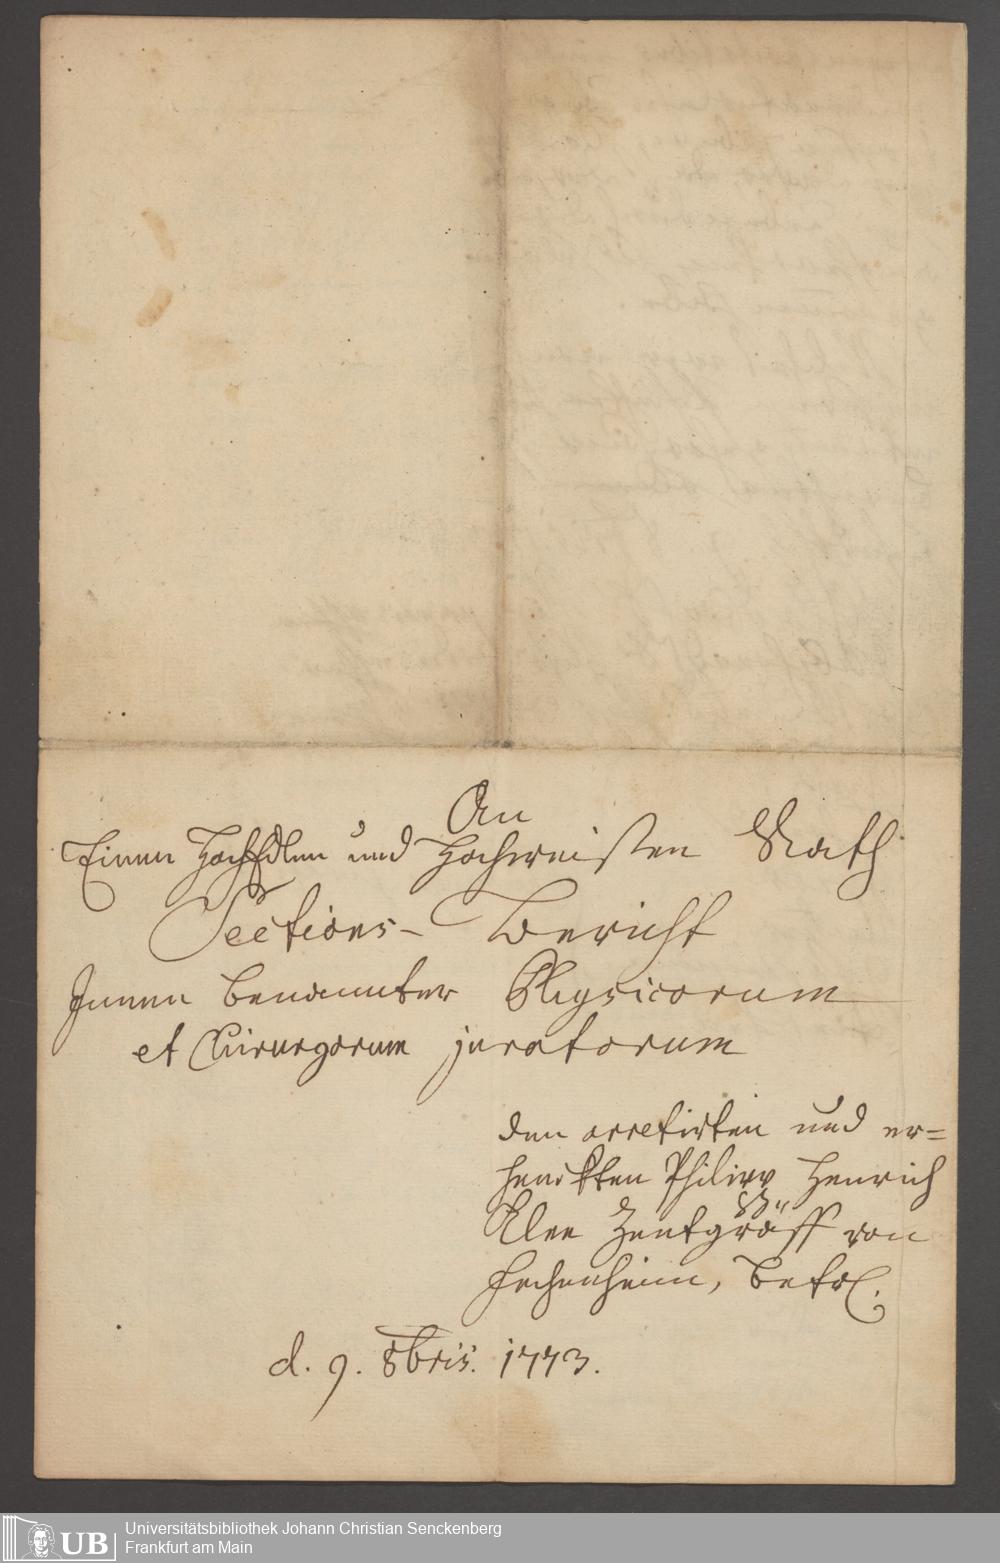 An
Einen HochEdlen und Hochweißen Rath
Sections-Bericht
Innen benannter Physicorum
et Chirurgorum juratorum
den arretirten und er=
henckten Philipp Henrich
Klee Zentgräff von
Fechenheim, betr.
d. 9. 8bris. 1773.
UB
Universitätsbibliothek Johann Christian Senckenberg
Frankfurt am Main